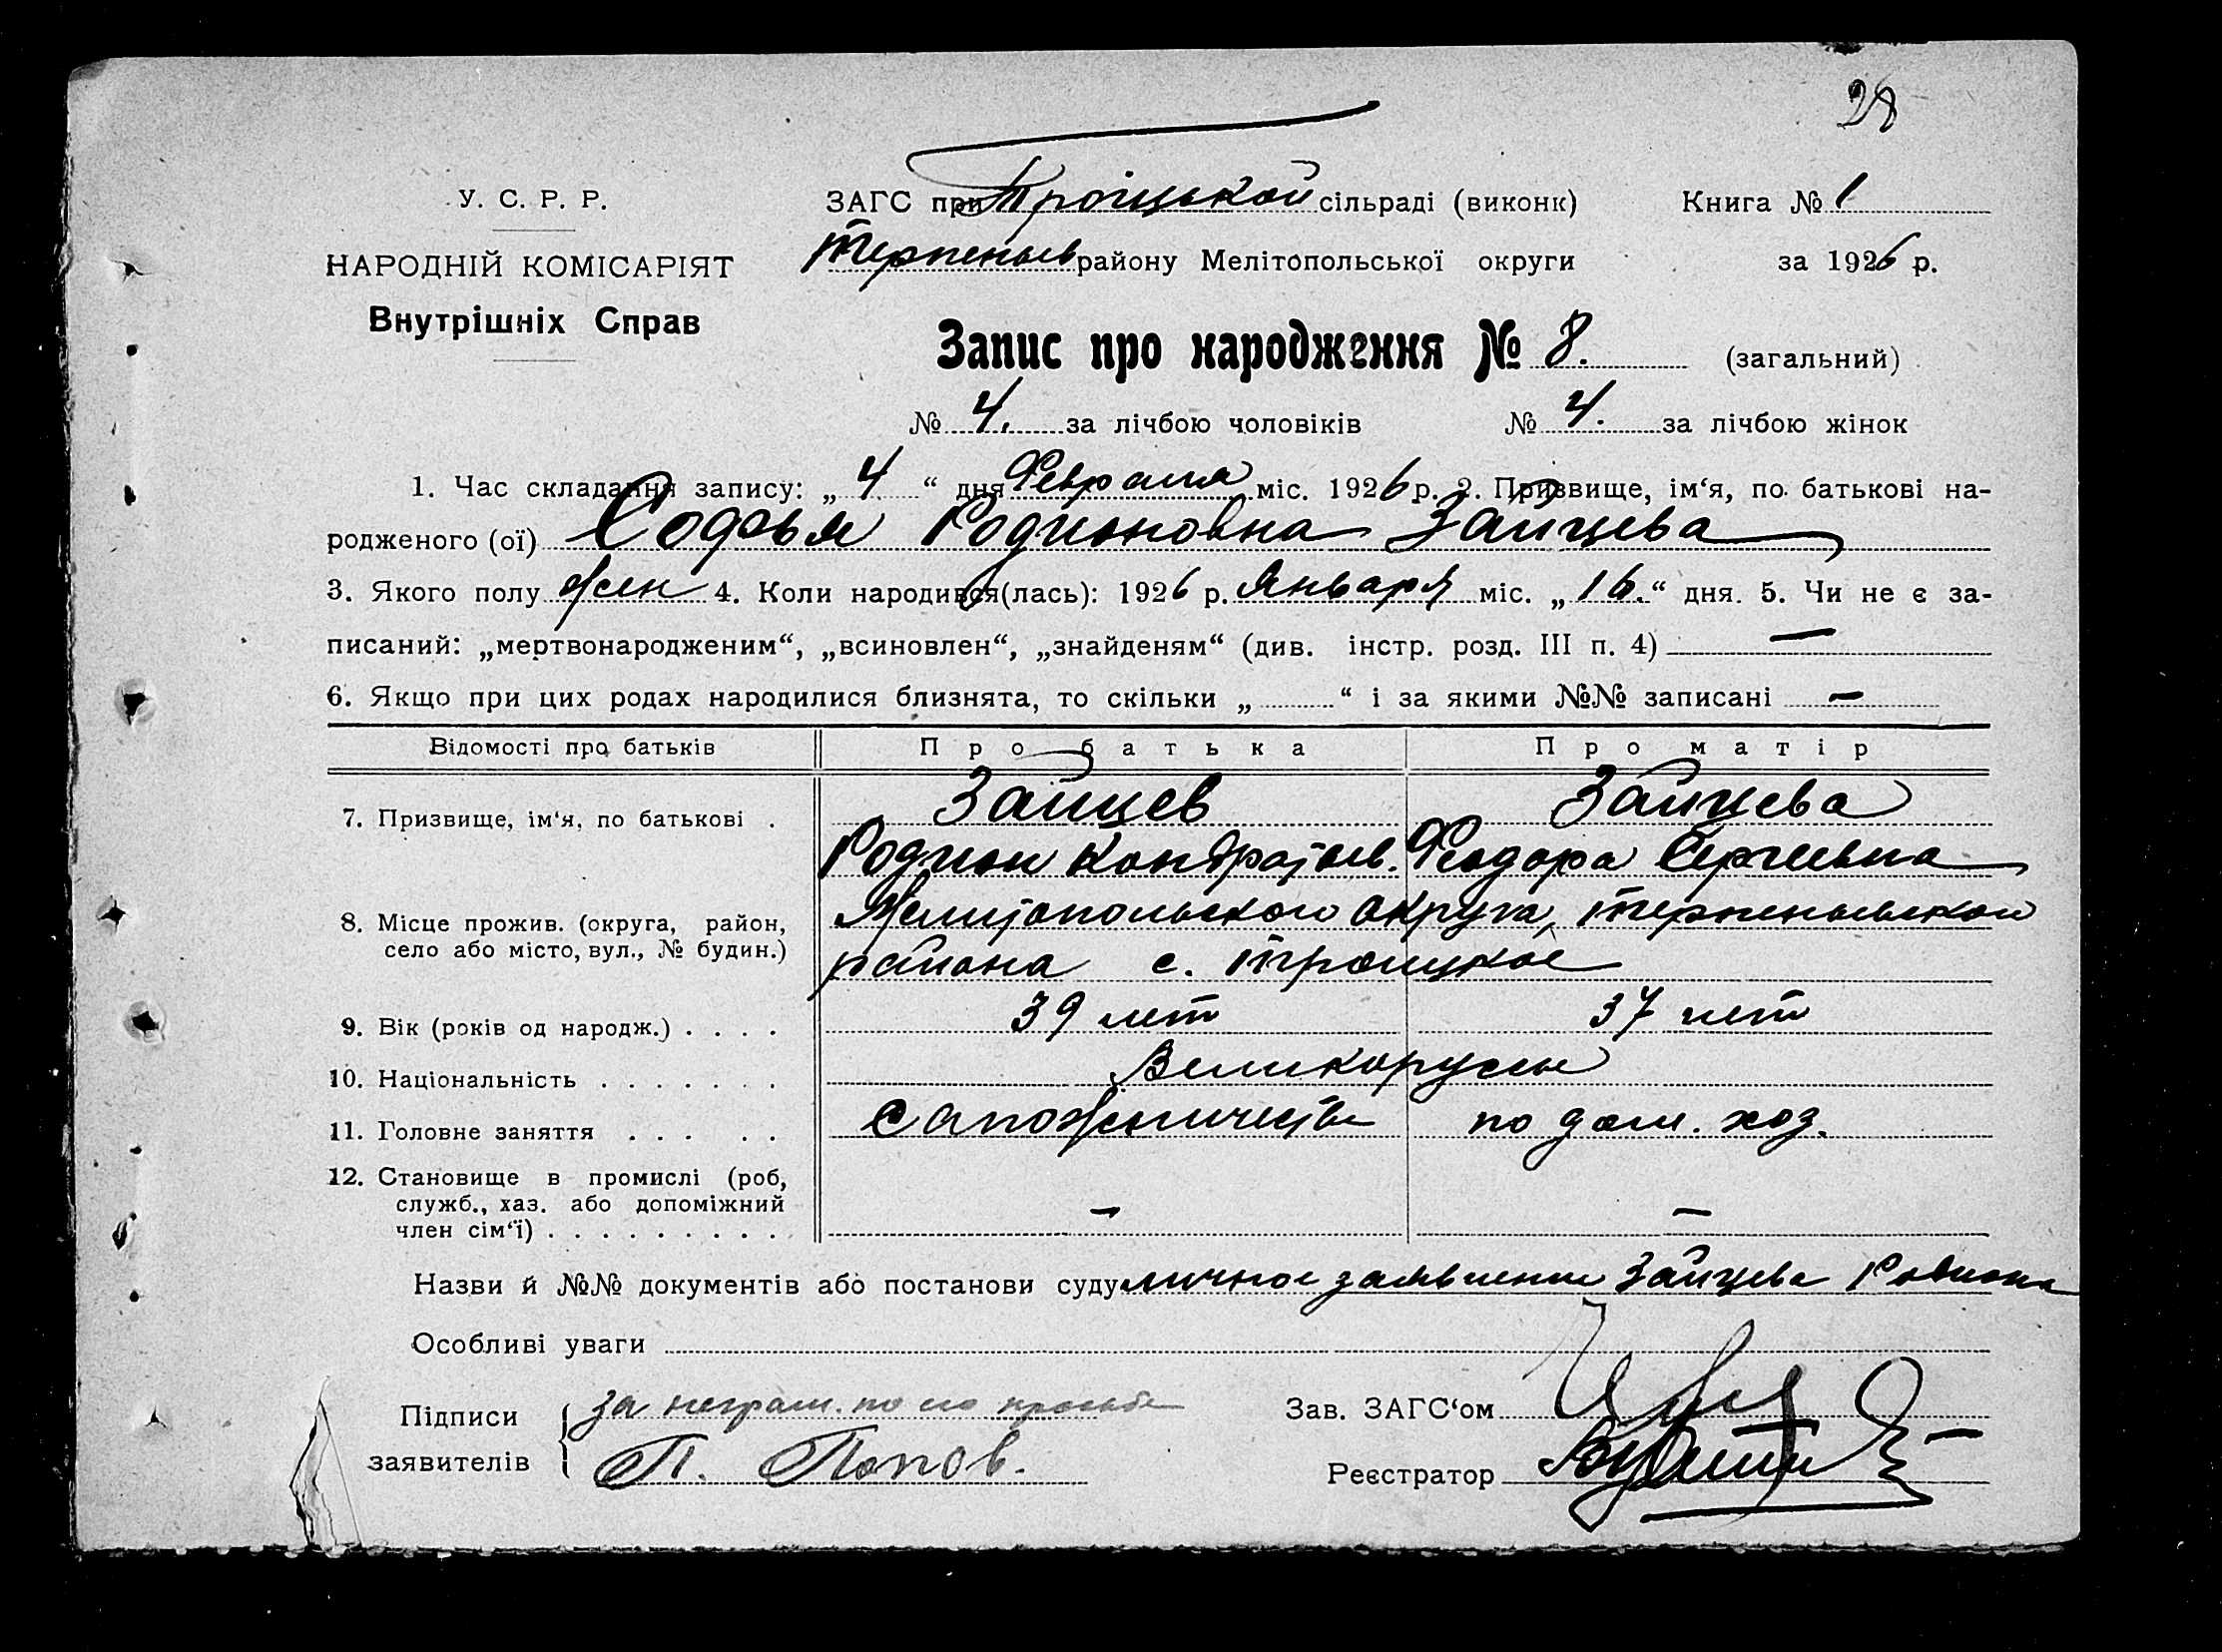 28
У. С. Р. Р.
НАРОДНІЙ КОМІСАРІЯТ
Внутрішніх Справ
ЗАГС при Троїцькой сільраді (виконк)
Терпеньев району Мелітопольської округи
Книга № 1
за 1926 р.
Запис про народження № 8. (загальний)
№ 4. за лічбою чоловіків № 4. за лічбою жінок
1. Час складання запису: „ 4 “ дня Февраля міс. 1926 р. 2. Призвище, ім‘я, по батькові на-
родженого (ої) Софья Родионовна Зайцева
3. Якого полу жен 4. Коли народився(лась): 1926 р. Января міс. „ 16. “ дня. 5. Чи не є за-
писаний: „мертвонародженим“, „всиновлен“, „знайденям“ (див. інстр. розд. III п. 4) —
6. Якщо при цих родах народилися близнята, то скільки „ “ і за якими №№ записані —
Відомості про батьків Про батька Про матір
7. Призвище, ім‘я, по батькові . Зайцев Зайцева
Родион Кондратьев. Феодора Сергеевна
8. Місце прожив. (округа, район,
село або місто, вул., № будин.)
Мелитопольского округа, Терпеньевской
района с. Троицкое
9. Вік (років од народж.) . . . . 39 лет 37 лет
10. Національність . . . . . . . Великорусы
11. Головне заняття . . . . . Сапожничество по дом. хоз.
12. Становище в промислі (роб,
служб., хаз. або допоміжний
член сім‘ї) . . . . . . . . . — —
Назви й №№ документів або постанови суду личное заявление Зайцева Родиона
Особливі уваги
Підписи
заявителів
за неграм. по его просьбе
П. Попов.
Зав. ЗАГС‘ом
Реєстратор